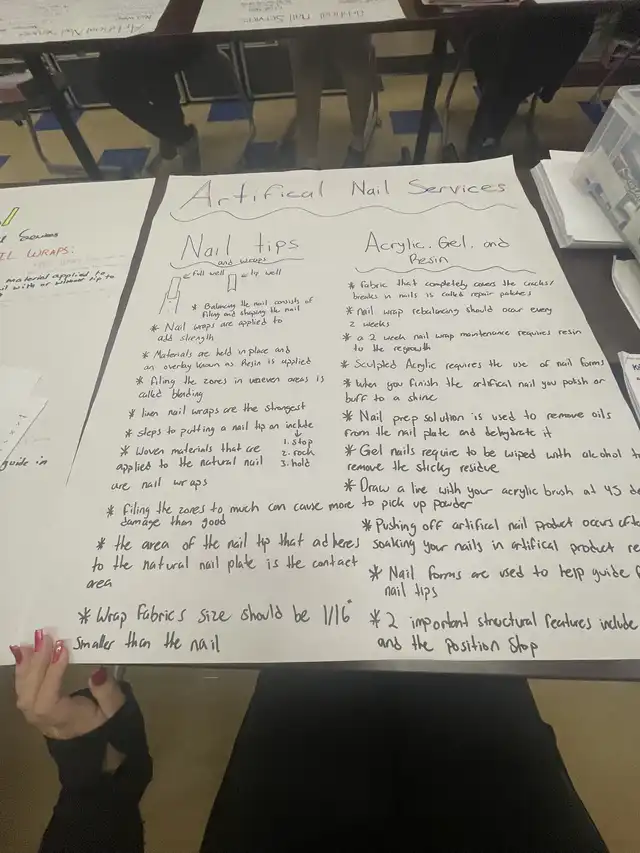 Artifical Nail Services
Nail tips
and wraps
full well
1/2 well
* Balancing the nail consists of
filing and shaping the nail
* Nail wraps are applied to
add strength
* Materials are held in place and
an overlay known as Resin is applied
* filing the zones in uneven areas is
called blending
* linen nail wraps are the strongest
* Steps to putting a nail tip on include
1. stop
2. rock
3. hold
* Woven materials that are
applied to the natural nail
are nail wraps
* filing the zones to much can cause more
damage than good
* the area of the nail tip that adheres
to the natural nail plate is the contact
area
* Wrap Fabrics size should be 1/16"
smaller than the nail
Acrylic, Gel, and
Resin
* Fabric that completely covers the cracks/
breaks in nails is called repair patches
* nail wrap rebalancing should occur every
2 weeks
* a 2 week nail wrap maintenance requires resin
to the regrowth
* Sculpted Acrylic requires the use of nail forms
* When you finish the artifical nail you polish or
buff to a shine
* Nail prep solution is used to remove oils
from the nail plate and dehydrate it
* Gel nails require to be wiped with alcohol
remove the sticky residue
* Draw a line with your acrylic brush at 45
to pick up powder
* Pushing off artifical nail product occurs
soaking your nails in artifical product
* Nail forms are used to help guide
nail tips
* 2 important structural features include
and the Position Stop
NAIL WRAPS:
material applied to
guide in
Artifical Nail Services